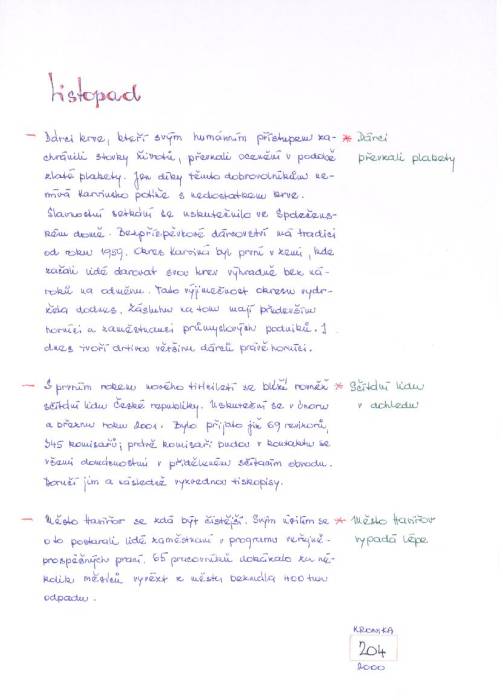 Listopad
— Dárci krve, kteří svým humánním přístupem za-
chránili stovky životů, převzali ocenění v podobě
zlaté plakety. Jen díky těmto dobrovolníkům ne-
mívá Karvinsko potíže s nedostatkem krve.
Slavnostní setkání se uskutečnilo ve Společen-
ském domě. Bezpříspěvkové dárcovství má tradici
od roku 1959. Okres Karviná byl první v zemi, kde
začali lidé darovat svou krev výhradně bez ná-
roků na odměnu. Tato výjimečnost okresu vydr-
žela dodnes. Zásluhu na tom mají především
horníci a zaměstnanci průmyslových podniků. I
dnes tvoří drtivou většinu dárců právě horníci.
* Dárci
převzali plakety
— S prvním rokem nového tisíciletí se blíží rovněž
sčítání lidu České republiky. Uskuteční se v únoru
a březnu roku 2001. Bylo přijato již 69 revizorů,
345 komisařů; právě komisaři budou v kontaktu se
všemi domácnostmi v přiděleném sčítacím obvodu.
Doručí jim a následně vyzvednou tiskopisy.
* Sčítání lidu
v dohledu
— Město Havířov se zdá být čistější. Svým úsilím se
o to postarali lidé zaměstnaní v programu veřejně-
prospěšných prací. 65 pracovníků dokázalo za ně-
kolik měsíců vyvézt z města bezmála 400 tun
odpadu.
* Město Havířov
vypadá lépe
KRONIKA
204
2000